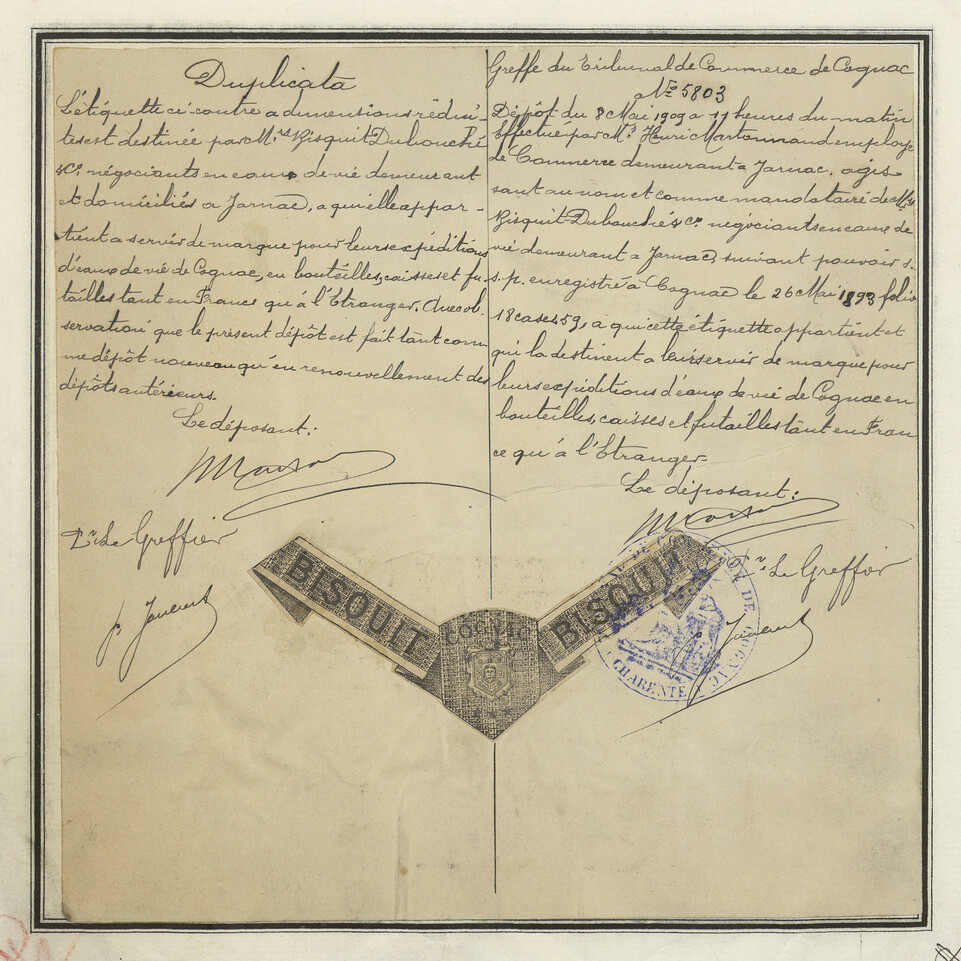 Duplicata
L'étiquette ci-contre a dimensions rédui-
tes est destinée par M.rs Bisquit Dubouché
& Cie négociants en eaux de vie demeurant
et domiciliés a Jarnac, a qui elle appar-
tient a servir de marque pour leurs expéditions
d'eaux de vie de Cognac, en bouteilles, caisses et fu-
tailles tant en France qu'à l'Etranger. Avec ob-
servation que le présent dépôt est fait tant com-
me dépôt nouveau qu'en renouvellement des
dépôts antérieurs.
Le déposant:
Pr Le Greffier
Greffe du Tribunal de Commerce de Cognac
No 5803
Dépôt du 8 Mai 1909 a 11 heures du matin
Effectué par Mr Henri Martonnaud employé
de Commerce demeurant a Jarnac, agis-
sant au nom et comme mandataire de Mrs
Bisquit Dubouché & Ce négociants en eaux de
vie demeurant a Jarnac, suivant pouvoir s.
s.p. enregistré à Cognac le 26 Mai 1893 folio
18 case 459, a qui cette étiquette appartient et
qui la destinent a leur servir de marque pour
leurs expéditions d'eaux de vie de Cognac en
bouteilles, caisses et futailles tant en Fran
ce qu'à l'Etranger.
Le déposant:
Pr Le Greffier
BISQUIT
COGNAC
BISQUIT
DE COGNAC
CHARENTE